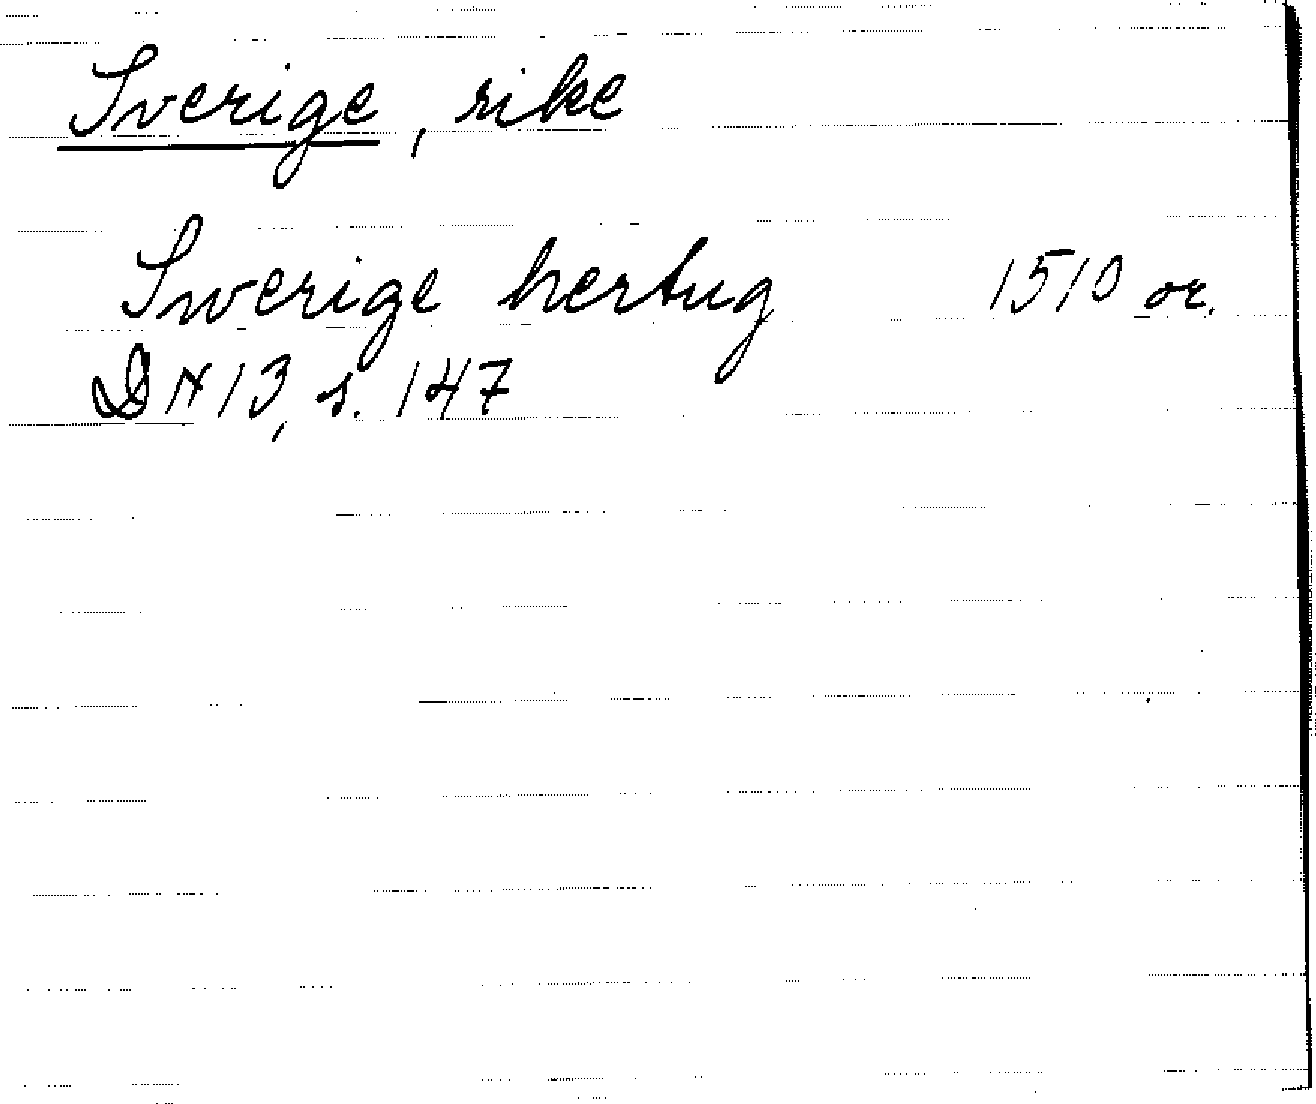 Sverige, rike
Swerige hertug 1510 or.
DN 13, s. 147